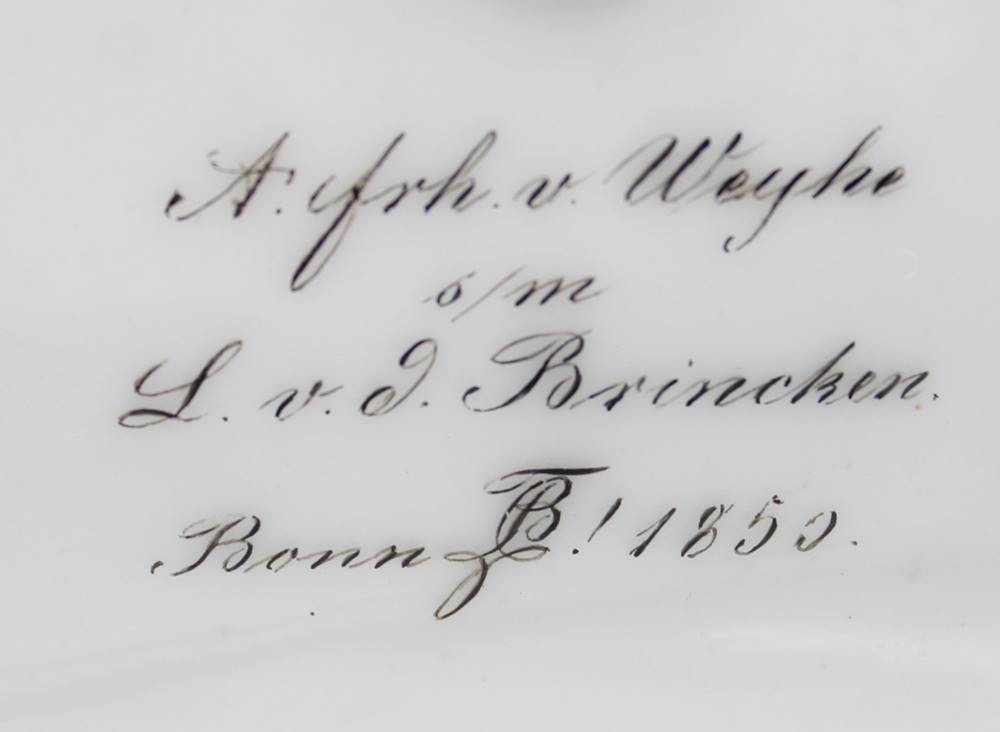 A. frh. v. Weyhe
s/m
L. v. d. Brincken.
Bonn ! 1850.